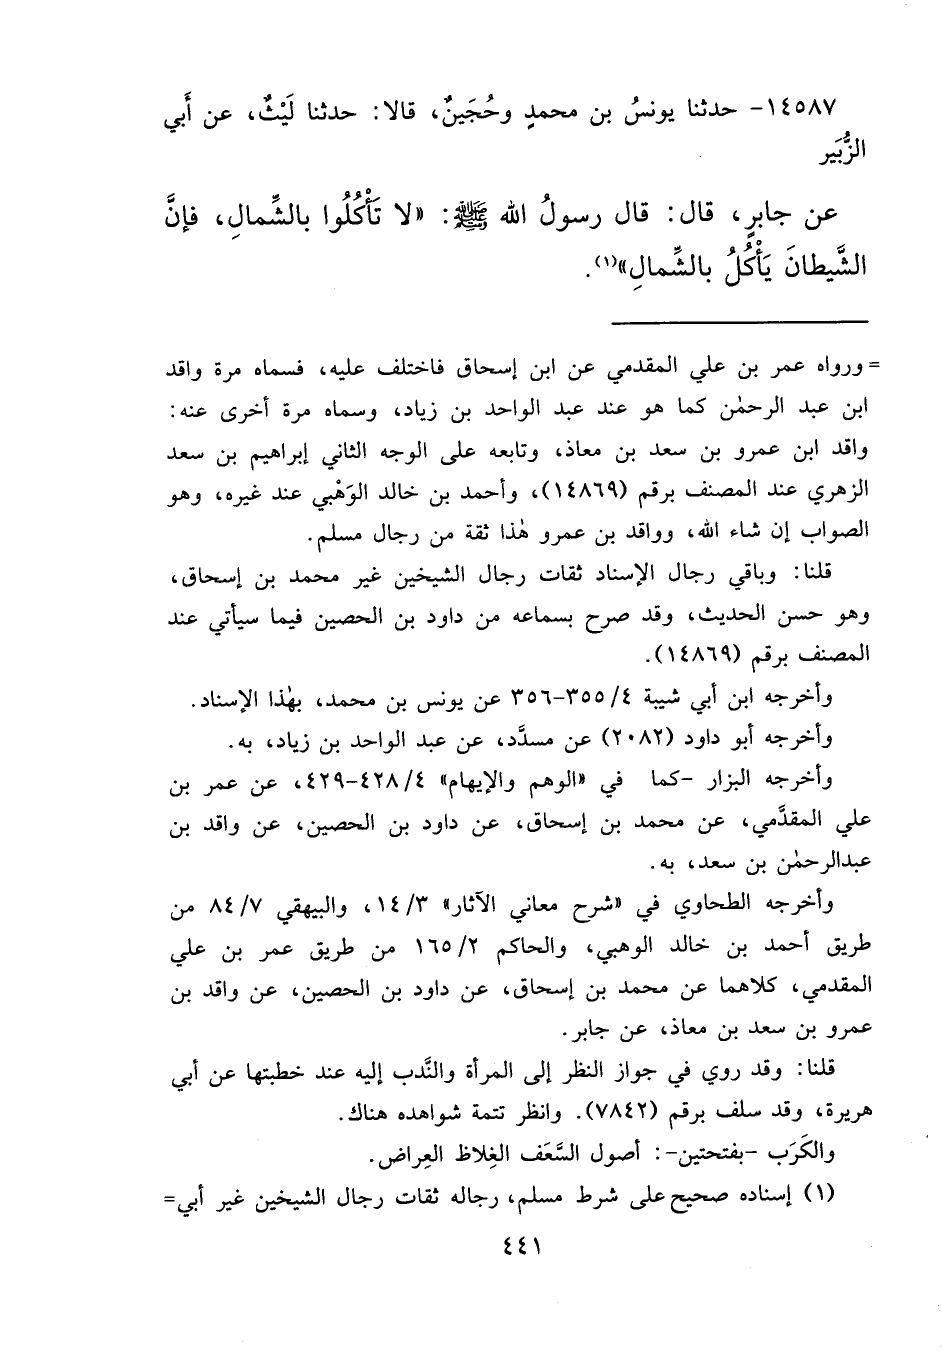 ١٤٥٨٧- حدثنا يونسُ بن محمدٍ وحُجَينٌ، قالا: حدثنا لَيْثٌ، عن أَبي
الزُّبَير
عن جابرٍ، قال: قال رسولُ الله ﷺ: «لا تَأْكُلُوا بالشِّمالِ، فإنَّ
الشَّيطانَ يَأْكُلُ بالشِّمالِ»(١).
= ورواه عمر بن علي المقدمي عن ابن إسحاق فاختلف عليه، فسماه مرة واقد
ابن عبد الرحمٰن كما هو عند عبد الواحد بن زياد، وسماه مرة أخرى عنه:
واقد ابن عمرو بن سعد بن معاذ، وتابعه على الوجه الثاني إبراهيم بن سعد
الزهري عند المصنف برقم (١٤٨٦٩)، وأحمد بن خالد الوَهْبي عند غيره، وهو
الصواب إن شاء الله، وواقد بن عمرو هٰذا ثقة من رجال مسلم.
قلنا: وباقي رجال الإسناد ثقات رجال الشيخين غير محمد بن إسحاق،
وهو حسن الحديث، وقد صرح بسماعه من داود بن الحصين فيما سيأتي عند
المصنف برقم (١٤٨٦٩).
وأخرجه ابن أبي شيبة ٤/ ٣٥٥-٣٥٦ عن يونس بن محمد، بهٰذا الإسناد.
وأخرجه أبو داود (٢٠٨٢) عن مسدَّد، عن عبد الواحد بن زياد، به.
وأخرجه البزار -كما في «الوهم والإيهام» ٤/ ٤٢٨-٤٢٩، عن عمر بن
علي المقدَّمي، عن محمد بن إسحاق، عن داود بن الحصين، عن واقد بن
عبدالرحمٰن بن سعد، به.
وأخرجه الطحاوي في «شرح معاني الآثار» ٣/ ١٤، والبيهقي ٧/ ٨٤ من
طريق أحمد بن خالد الوهبي، والحاكم ٢/ ١٦٥ من طريق عمر بن علي
المقدمي، كلاهما عن محمد بن إسحاق، عن داود بن الحصين، عن واقد بن
عمرو بن سعد بن معاذ، عن جابر.
قلنا: وقد روي في جواز النظر إلى المرأة والنَّدب إليه عند خطبتها عن أبي
هريرة، وقد سلف برقم (٧٨٤٢). وانظر تتمة شواهده هناك.
والكَرَب -بفتحتين-: أصول السَّعَف الغِلاظ العِراض.
(١) إسناده صحيح على شرط مسلم، رجاله ثقات رجال الشيخين غير أبي=
٤٤١